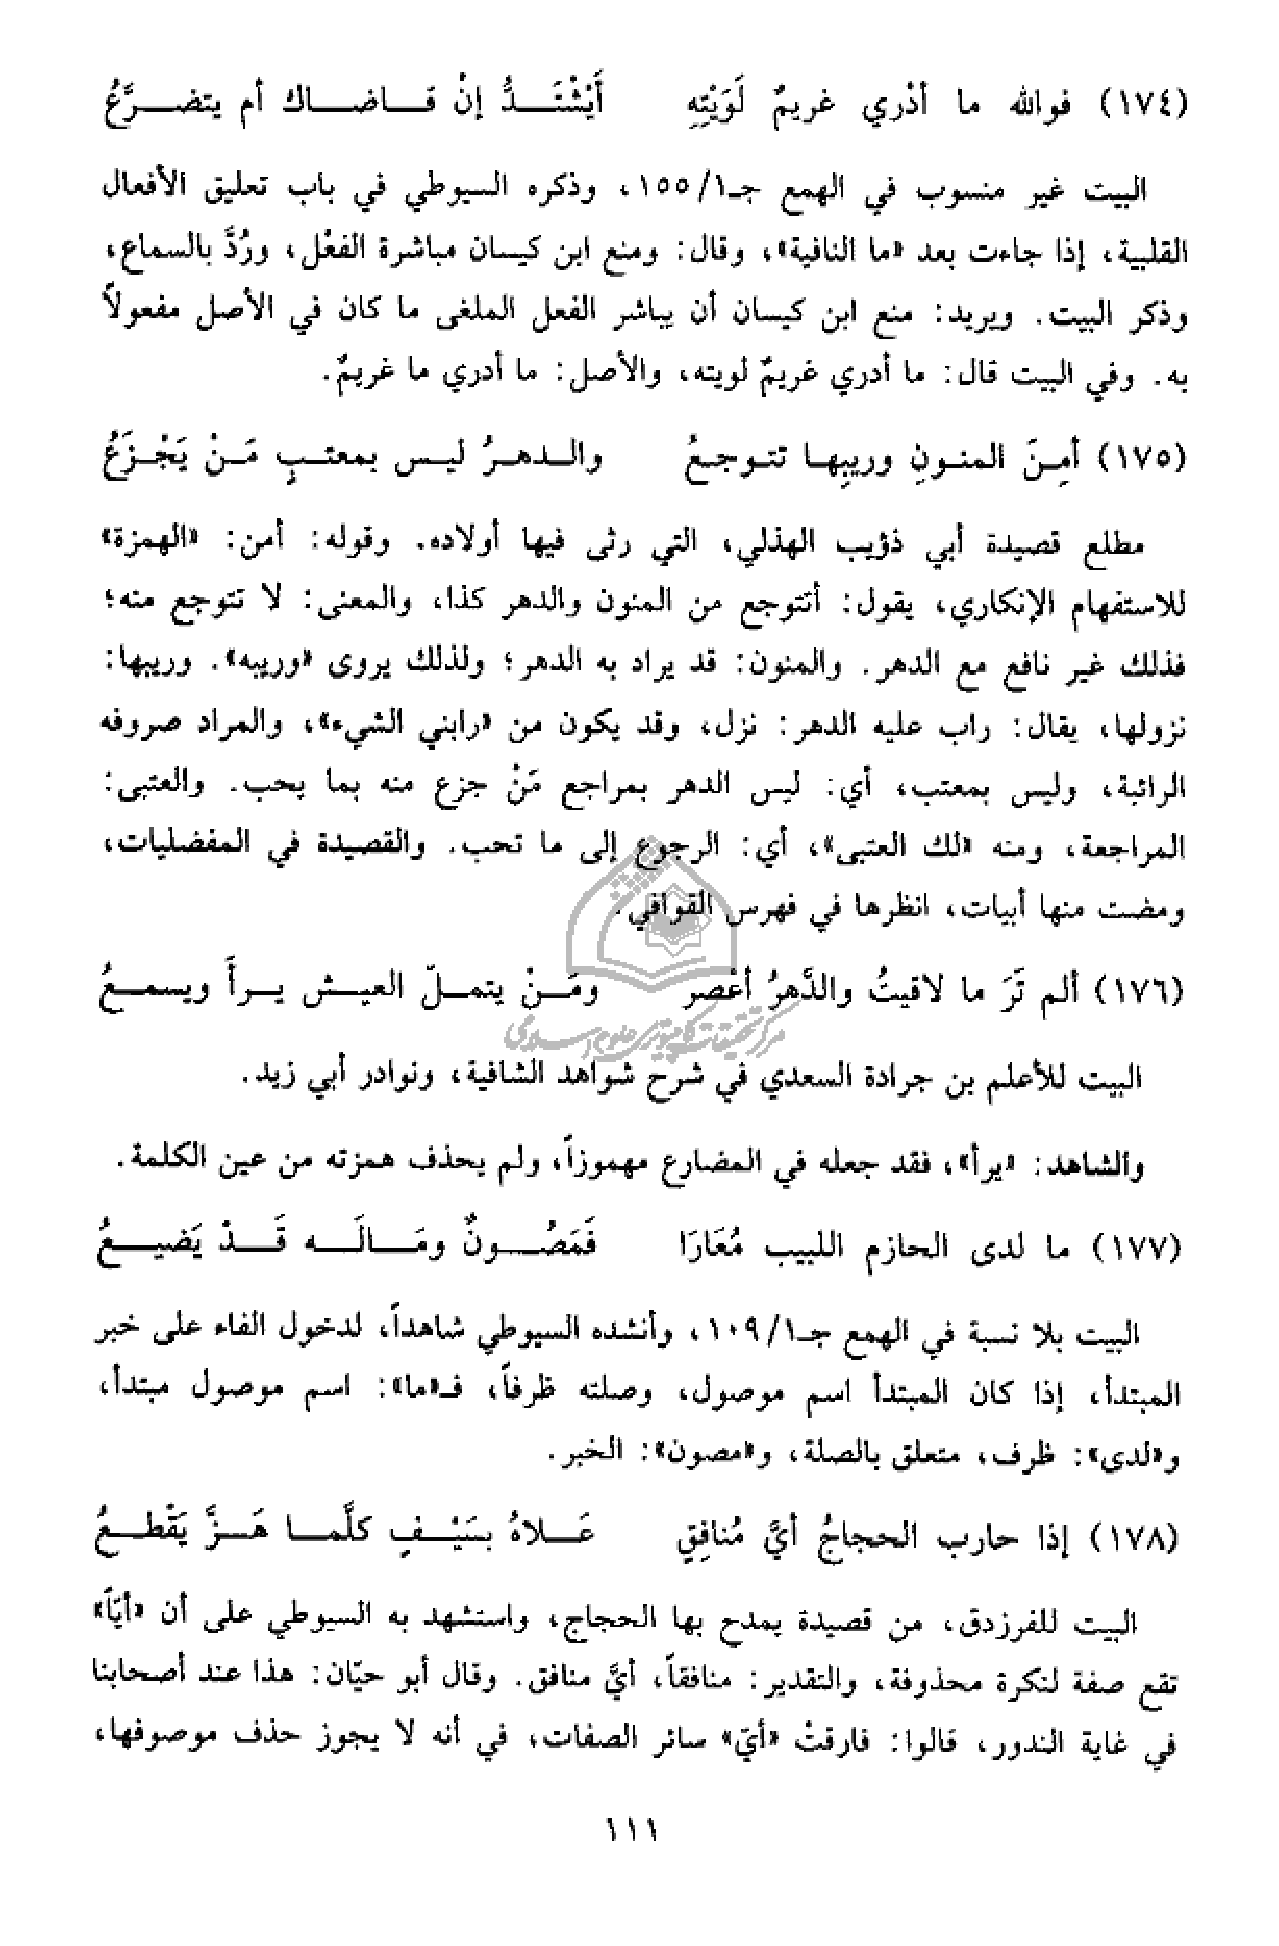 (١٧٤) فوالله ما أدْري غريمٌ لَوَيْتِهِ أَيَشْتَدُّ إنْ قاضاك أم يتضرَّعُ
البيت غير منسوب في الهمع جـ١/١٥٥، وذكره السيوطي في باب تعليق الأفعال
القلبية، إذا جاءت بعد «ما النافية»، وقال: ومنع ابن كيسان مباشرة الفعْل، ورُدَّ بالسماع،
وذكر البيت. ويريد: منع ابن كيسان أن يباشر الفعل الملغى ما كان في الأصل مفعولاً
به. وفي البيت قال: ما أدري غريمٌ لويته، والأصل: ما أدري ما غريمٌ.
(١٧٥) أمِنَ المنونِ وريبِها تتوجعُ والدهرُ ليس بمعتبٍ مَنْ يَجْزَعُ
مطلع قصيدة أبي ذؤيب الهذلي، التي رثى فيها أولاده. وقوله: أمن: «الهمزة»
للاستفهام الإنكاري، يقول: أتتوجع من المنون والدهر كذا، والمعنى: لا تتوجع منه؛
فذلك غير نافع مع الدهر. والمنون: قد يراد به الدهر؛ ولذلك يروى «وريبه». وريبها:
نزولها، يقال: راب عليه الدهر: نزل، وقد يكون من «رابني الشيء»، والمراد صروفه
الرائبة، وليس بمعتب، أي: ليس الدهر بمراجع مَنْ جزع منه بما يحب. والعتبى:
المراجعة، ومنه «لك العتبى»، أي: الرجوع إلى ما تحب. والقصيدة في المفضليات،
ومضت منها أبيات، انظرها في فهرس القوافي.
(١٧٦) ألم تَرَ ما لاقيتُ والدَّهرُ أعْصر ومَنْ يتملّ العيش يرأَ ويسمعُ
مركز تحقيقات كامپيوتري علوم اسلامي
البيت للأعلم بن جرادة السعدي في شرح شواهد الشافية، ونوادر أبي زيد.
والشاهد: «يرأ»، فقد جعله في المضارع مهموزاً، ولم يحذف همزته من عين الكلمة.
(١٧٧) ما لدى الحازم اللبيب مُعَارَا فَمَصُونٌ ومَالَه قَدْ يَضيعُ
البيت بلا نسبة في الهمع جـ١/١٠٩، وأنشده السيوطي شاهداً، لدخول الفاء على خبر
المبتدأ، إذا كان المبتدأ اسم موصول، وصلته ظرفاً، فـ«ما»: اسم موصول مبتدأ،
و«لدى»: ظرف، متعلق بالصلة، و«مصون»: الخبر.
(١٧٨) إذا حارب الحجاجُ أيَّ مُنافِقٍ عَلاهُ بسَيْفٍ كلَّما هَزَّ يَقْطعُ
البيت للفرزدق، من قصيدة يمدح بها الحجاج، واستشهد به السيوطي على أن «أيّاً»
تقع صفة لنكرة محذوفة، والتقدير: منافقاً، أيَّ منافق. وقال أبو حيّان: هذا عند أصحابنا
في غاية الندور، قالوا: فارقتْ «أيّ» سائر الصفات، في أنه لا يجوز حذف موصوفها،
١١١